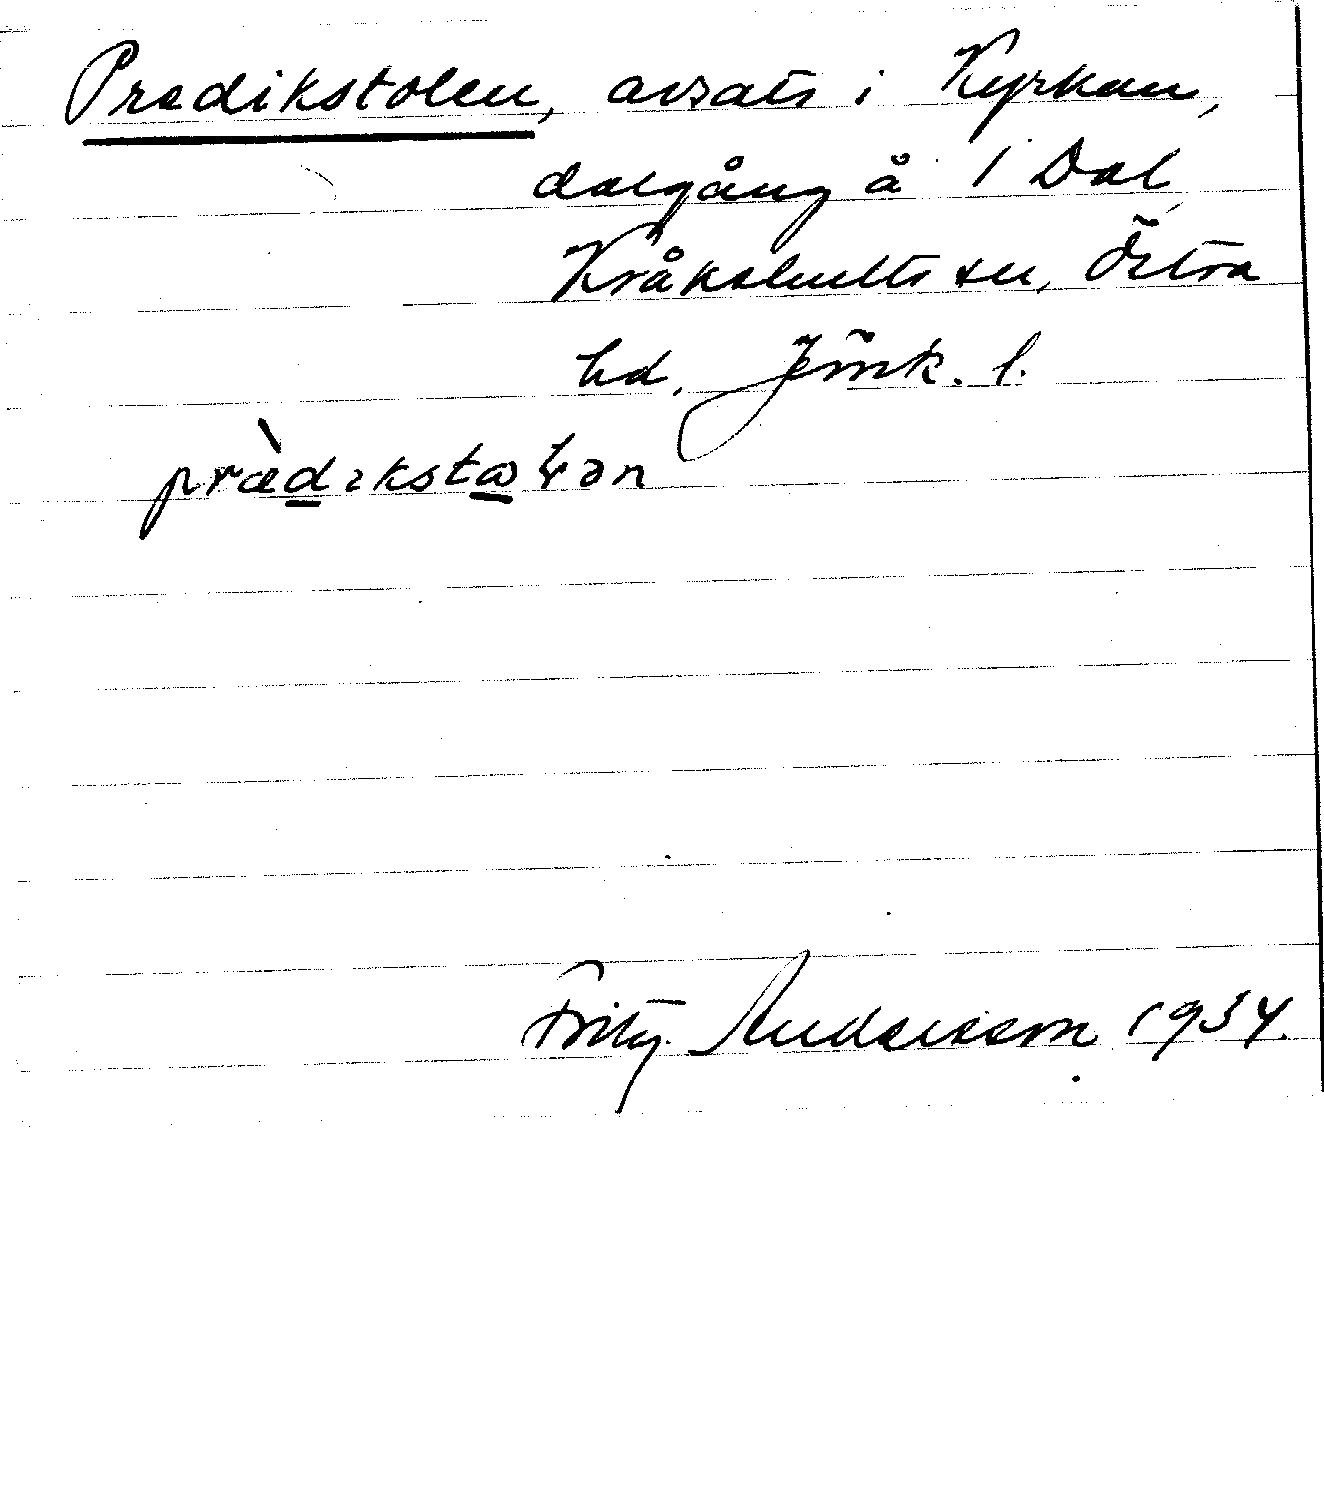 Predikstolen, avsats i Kyrkan,
dalgång å 1 Dal
Kråkshults sn, Östra
hd, Jönk. l.
prædıkstꞷłən
Fritz Andersson 1934.